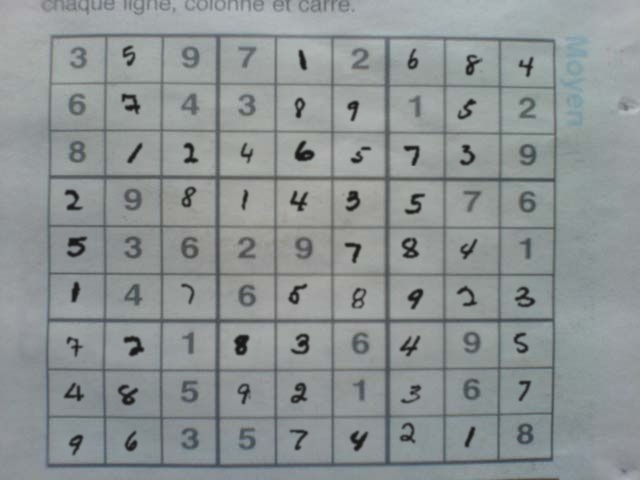 chaque ligne, colonne et carré.
3 5 9 7 1 2 6 8 4
6 7 4 3 8 9 1 5 2
8 1 2 4 6 5 7 3 9
2 9 8 1 4 3 5 7 6
5 3 6 2 9 7 8 4 1
1 4 7 6 5 8 9 2 3
7 2 1 8 3 6 4 9 5
4 8 5 9 2 1 3 6 7
9 6 3 5 7 4 2 1 8
Moyen